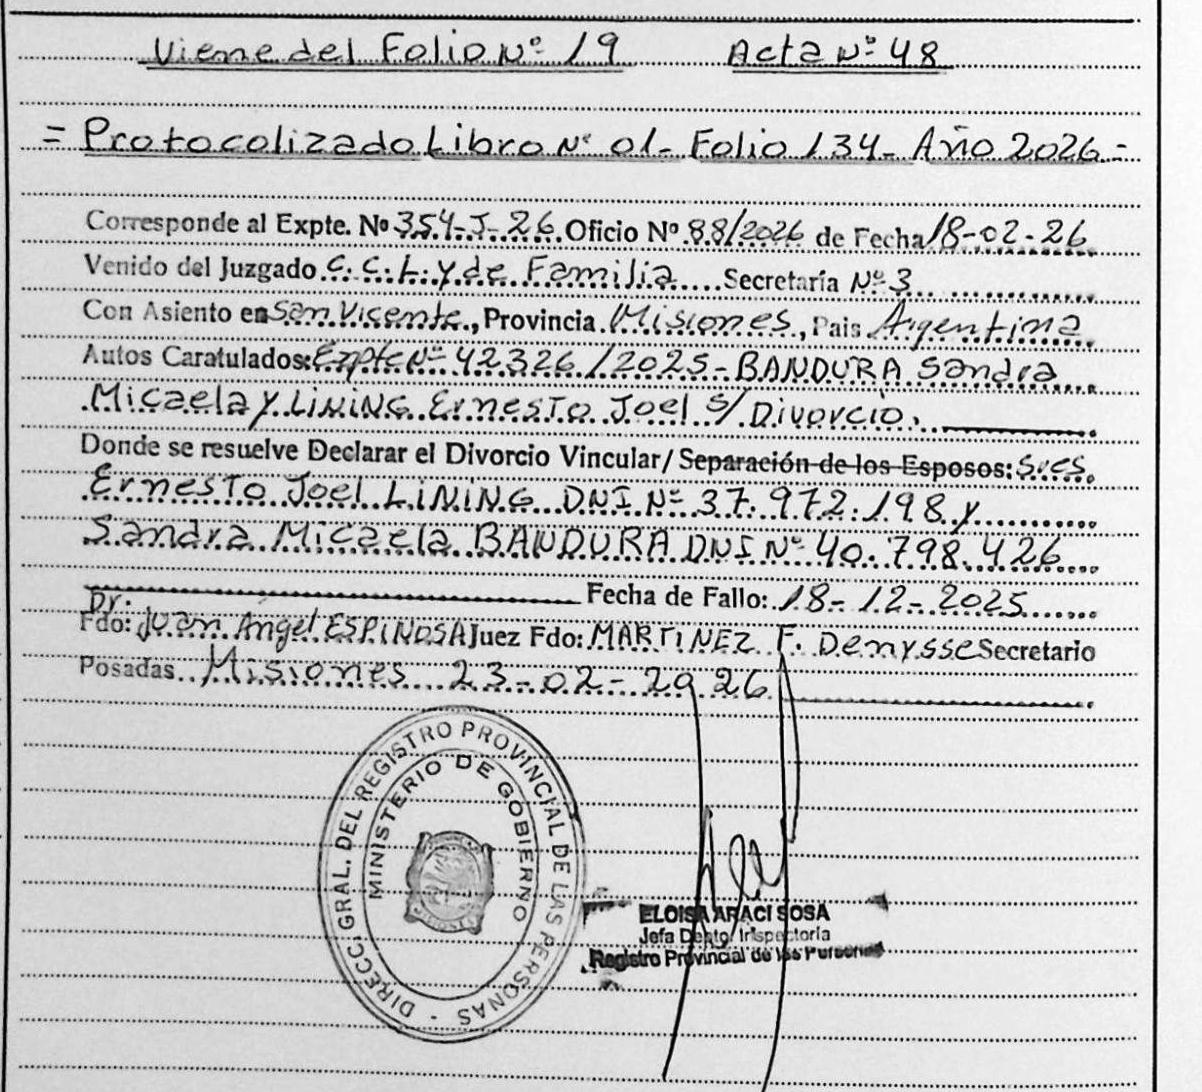 Viene del Folio Nº 19 Acta Nº 48
= Protocolizado Libro Nº 01 - Folio 134 - Año 2026 =
Corresponde al Expte. Nº 354-J-26 Oficio Nº 88/2026 de Fecha 18-02-26
Venido del Juzgado C.C.L. y de Familia Secretaría Nº 3
Con Asiento en San Vicente, Provincia Misiones, Pais Argentina
Autos Caratulados: Expte Nº 42326/2025 - BANDURA Sandra
Micaela y LINING Ernesto Joel s/ Divorcio.
Donde se resuelve Declarar el Divorcio Vincular/ Separación de los Esposos: Sres.
Ernesto Joel LINING DNI Nº 37.972.198 y
Sandra Micaela BANDURA DNI Nº 40.798.426
Fecha de Fallo: 18-12-2025
Fdo: Dr. Juan Angel ESPINOSA Juez Fdo: MARTINEZ F. Denysse Secretario
Posadas Misiones 23-02-2026
DIRECC. GRAL. DEL REGISTRO PROVINCIAL DE LAS PERSONAS -
MINISTERIO DE GOBIERNO
MISIONES
ELOISA ARACI SOSA
Jefa Depto. Inspectoría
Registro Provincial de las Personas